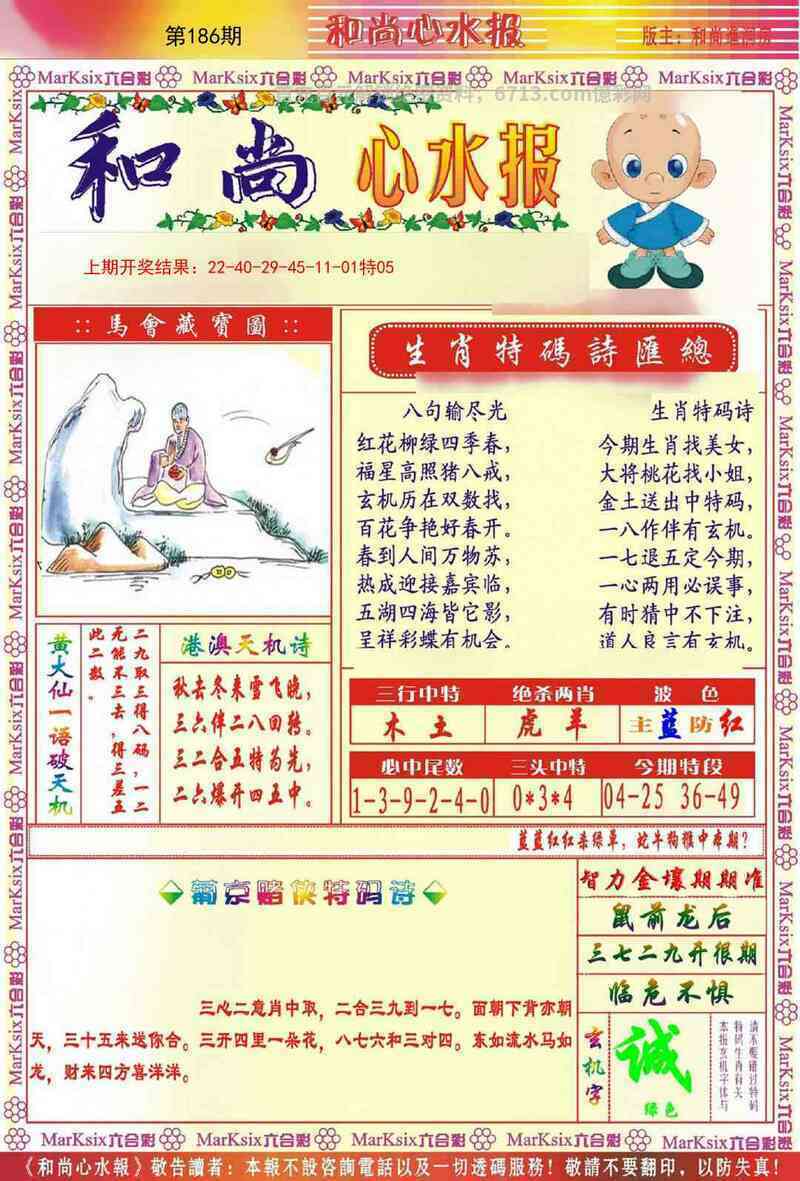 第186期
和尚心水报
版主：和尚
MarKsix六合彩 MarKsix六合彩 MarKsix六合彩 MarKsix六合彩 MarKsix六合彩
6713.com億彩网
和尚心水报
上期开奖结果：22-40-29-45-11-01特05
::馬會藏寶圖::
生肖特碼詩匯總
八句输尽光
红花柳绿四季春，
福星高照猪八戒，
玄机历在双数找，
百花争艳好春开。
春到人间万物苏，
热成迎接嘉宾临，
五湖四海皆它影，
呈祥彩蝶有机会。
生肖特码诗
今期生肖找美女，
大将桃花找小姐，
金土送出中特码，
一八作伴有玄机。
一七退五定今期，
一心两用必误事，
有时猜中不下注，
道人良言有玄机。
黄大仙一语破天机
二九取三得八码，一二
无能不三去，得三差五
此二数。
港澳天机诗
秋去冬来雪飞晚，
三六伴二八回转。
三二合五特为先，
二六爆开四五中。
三行中特 绝杀两肖 波色
木土 虎羊 主蓝防红
必中尾数 三头中特 今期特段
1-3-9-2-4-0 0*3*4 04-25 36-49
蓝蓝红红杀绿单，蛇牛狗猴中本期？
葡京赌侠特码诗
三心二意肖中取，二合三九到一七。面朝下背亦朝
天，三十五来送你合。三开四里一朵花，八七六和三对四。东如流水马如
龙，财来四方喜洋洋。
智力金壤期期准
鼠前龙后
三七二九开很期
临危不惧
玄机字
诚
绿色
请不要错过特码
特码生肖有关
本报玄机字体与
MarKsix六合彩 MarKsix六合彩 MarKsix六合彩 MarKsix六合彩 MarKsix六合彩
《和尚心水報》敬告讀者：本報不設咨詢電話以及一切透碼服務！敬請不要翻印，以防失真！